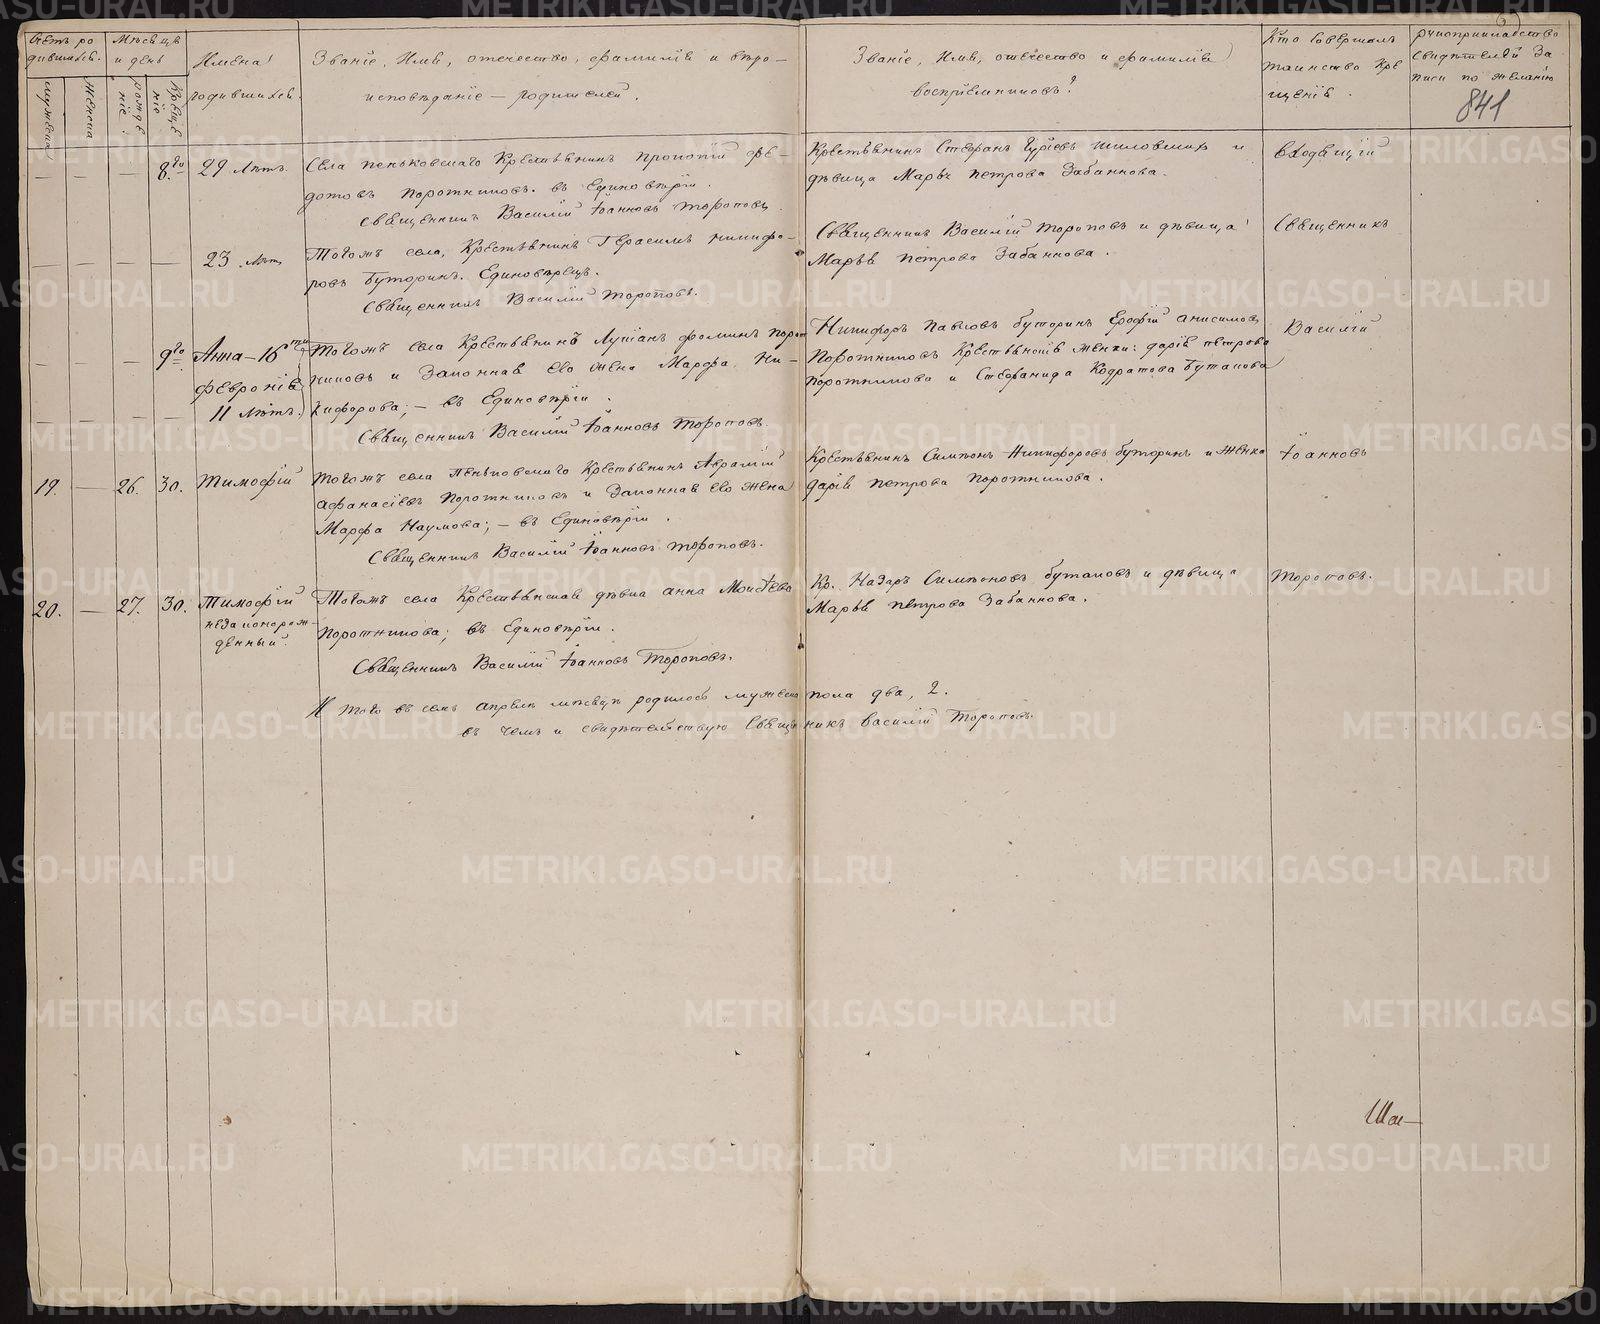 Счетъ ро
дившихся.
Мѣсяцъ
и день
мужеска
женска
рожде
ніе.
Креще
ніе
Имена
родившихся.
Званіе, Имя, отечество, фамилія и вѣро-
исповѣданіе — родителей.
Званіе, Имя, отечество и фамилія
воспріемниковъ?
Кто совершалъ
таинство Кре
щенія.
рукоприкладство
свидѣтелей За
писи по желанію
841
8го 29 лѣтъ.
Села пеньковскаго Крестьянинъ Прокопій фе-
дотовъ Поротниковъ. въ Единовѣріи.
Священникъ Василій Іоанновъ Тороповъ
Крестьянинъ Стефанъ Гуріевъ Шиловскихъ и
дѣвица Марья Петрова Забаннова.
входящій
23 лѣтъ
Тогожъ села, Крестьянинъ Герасимъ никифо-
ровъ Буторинъ. Единовѣрецъ.
Священникъ Василій Тороповъ.
Священникъ Василій Тороповъ и дѣвица
Марья Петрова Забаннова.
Священникъ
9го Анна — 16ти
февронія
11 лѣтъ.
Тогожъ села Крестьянинъ Лукіанъ фоминъ порот
никовъ и Законная его жена Марфа Ни-
кифорова; — въ Единовѣріи.
Священникъ Василій Іоанновъ Тороповъ.
Никифоръ Павловъ буторинъ Ерофій анисимовъ
Поротниковъ Крестьянскія женки: дарія петрова
поротникова и Стефанида Кодратова бутакова
Василій
19. — 26. 30. Тимофій
Тогожъ села Пеньковскаго Крестьянинъ Аврамій
афанасіевъ Поротниковъ и Законная его жена
Марфа Наумова; — въ Единовѣріи.
Священникъ Василій Іоанновъ Тороповъ.
Крестьянинъ Симеонъ Никифоровъ буторинъ и женка
дарія петрова поротникова.
Іоанновъ
20. — 27. 30. Тимофій
незаконорож-
денный.
Тогожъ села Крестьянская дѣвка анна Моисѣева
Поротникова; въ Единовѣріи.
Священникъ Василій Іоанновъ Тороповъ.
Кр. Назаръ Симеоновъ бутаковъ и дѣвица
Марья петрова Забаннова.
Тороповъ.
И того въ семъ апрель мѣсяцѣ родилось мужеска пола два, 2.
въ чемъ и свидѣтельствую Священникъ василій Тороповъ.
METRIKI.GASO-URAL.RU